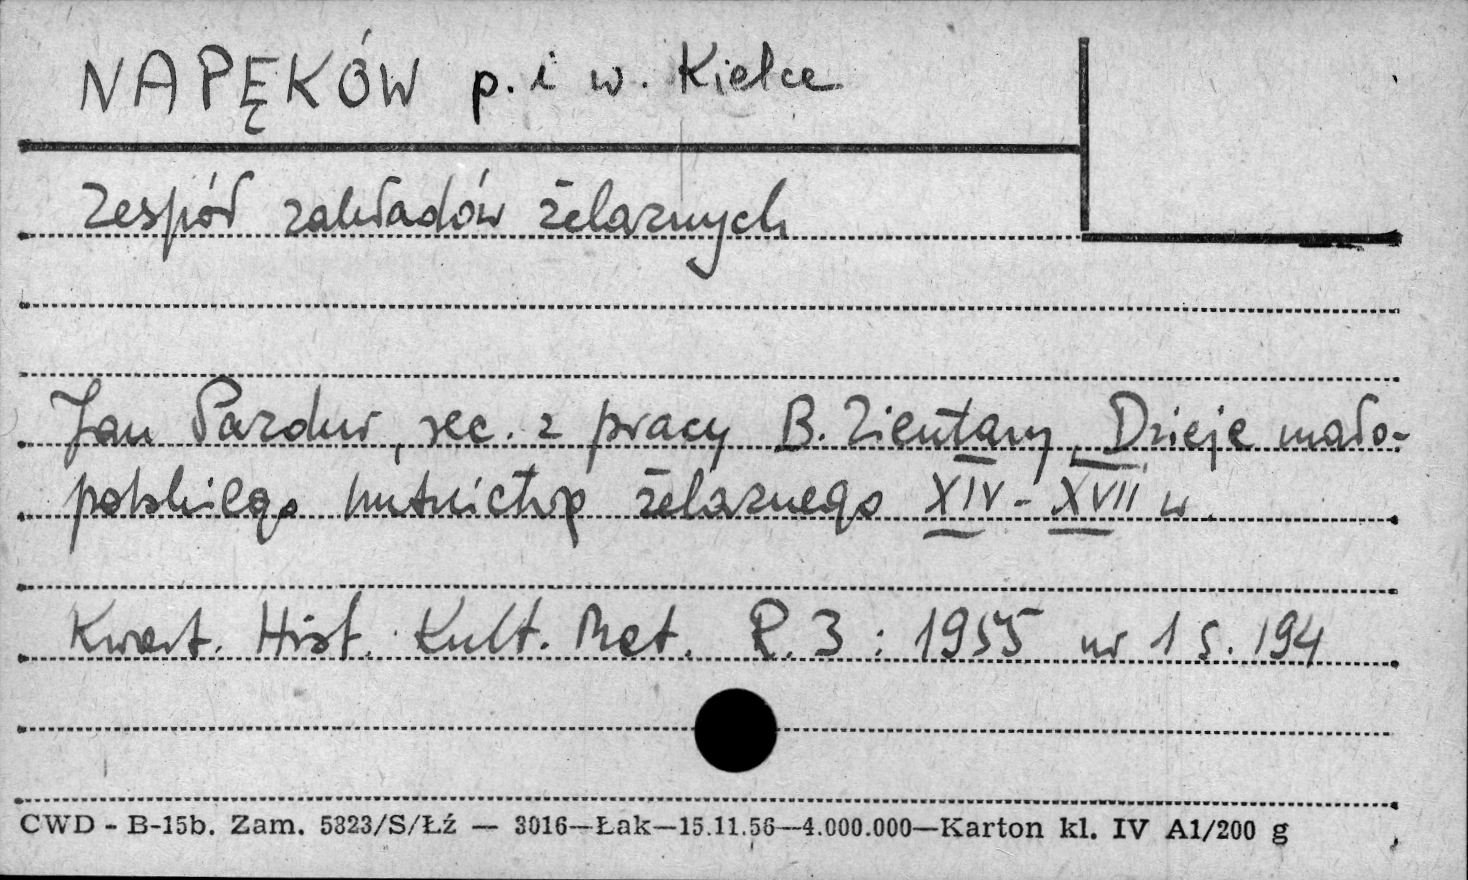 NAPĘKÓW p. i w. Kielce
Zespół zakładów żelaznych
Jan Pazdur, rec. z pracy B. Zientary, Dzieje mało-
polskiego hutnictwa żelaznego XIV-XVII w.
Kwart. Hist. Kult. Mat. R. 3 : 1955 nr 1 s. 194
CWD - B-15b. Zam. 5323/S/Łź — 3016—Łak—15.11.56—4.000.000—Karton kl. IV A1/200 g